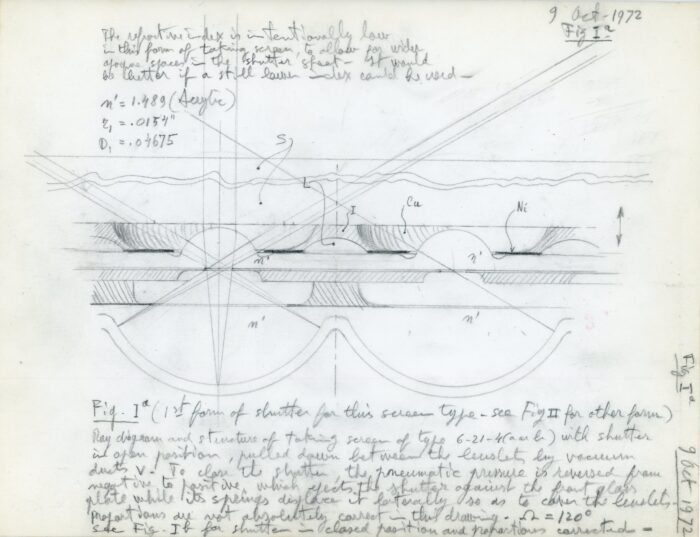 9 Oct-1972
Fig Iª
The refractive index is intentionally low
in this form of taking screen, to allow for wider
opaque spaces in the shutter sheet - It would
be better if a still lower index could be used -
n' = 1.489 (Acrylic)
r₁ = .0154"
D₁ = .04675
S
L
I
Cu
Ni
n'
n'
n'
n'
Fig. Iª (1st form of shutter for this screen type - see Fig III for other form)
Ray diagram and structure of taking screen of type 6-21-4(a or b) with shutter
in open position, pulled down between the lenslets by vacuum
ducts V. To close the shutter, the pneumatic pressure is reversed from
negative to positive, which the shutter against the front glass
plate while its springs displace it laterally so as to cover the lenslets.
proportions are not absolutely correct in this drawing. Ω = 120°
see Fig. Ib for shutter in closed position and proportions corrected =
Fig Iª
9 Oct 1972